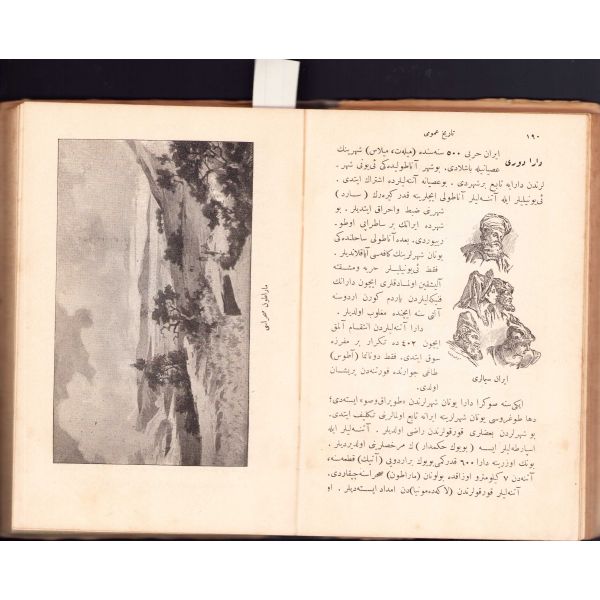 ١٩٠
تاریخ عمومی
دارا دوری
ایران حربی ٥٠٠ سنه‌سنده (میله‌ت، میلاس) شهرینك
عصیانیله باشلادی. بوشهر آناطولیده‌كی ئی‌ونی شهر ـ
لرندن دارایه تابع برشهردی. بوعصیانه آتنه‌لیلرده اشتراك ایتدی.
ئی‌ونیلیلر ایله آتنه‌لیلر آناطولی ایچلرینه قدر كیره‌رك (سارد)
شهرینی ضبط واحراق ایتدیلر. بو
شهرده ایرانك بر ساطراپی اوطو ـ
رییوردی. بعده آناطولی ساحلنده‌كی
یونان شهرلرینك كافه‌سی آیاقلاندیلر.
فقط ئی‌ونیلیلر حربه ومشقته
آلیشقین اولمادقلری ایچون دارانك
فنیكه‌لیلردن یاردم كورن اردوسنه
آلتی سنه ایچنده مغلوب اولدیلر.
دارا آتنه‌لیلردن انتقام آلمق
ایچون ٤٠٢ ده تكرار بر مفرزه
سوق ایتدی. فقط دونانما (آطوس)
طاغی جوارنده فورتنه‌دن پریشان
اولدی.
ایران سیمالری
ایكی سنه صوكرا دارا یونان شهرلرندن «طوپراق‌وصو» ایسته‌دی؛
دها طوغروسی یونان شهرلرینه ایرانه تابع اولمالرینی تكلیف ایتدی.
بو شهرلردن بعضلری قورقولرندن راضی اولدیلر. آتنه‌لیلر ایله
اسپارطه‌لیلر ایسه (بویوك حكمدار) ك مرخصلرینی اولدیردیلر.
بونك اوزرینه دارا ٦٠٠ قدركمی‌بویوك براردویی (آتیك) قطعه‌سنه،
آتنه‌دن ٧ كیلومترو اوزاقده بولونان (ماراطون) صحراسنه‌چیقاردی.
آتنه‌لیلر قورقولرندن (لاكه‌ده‌مونیا)دن امداد ایسته‌دیلر. او
ماراطون صحراسی